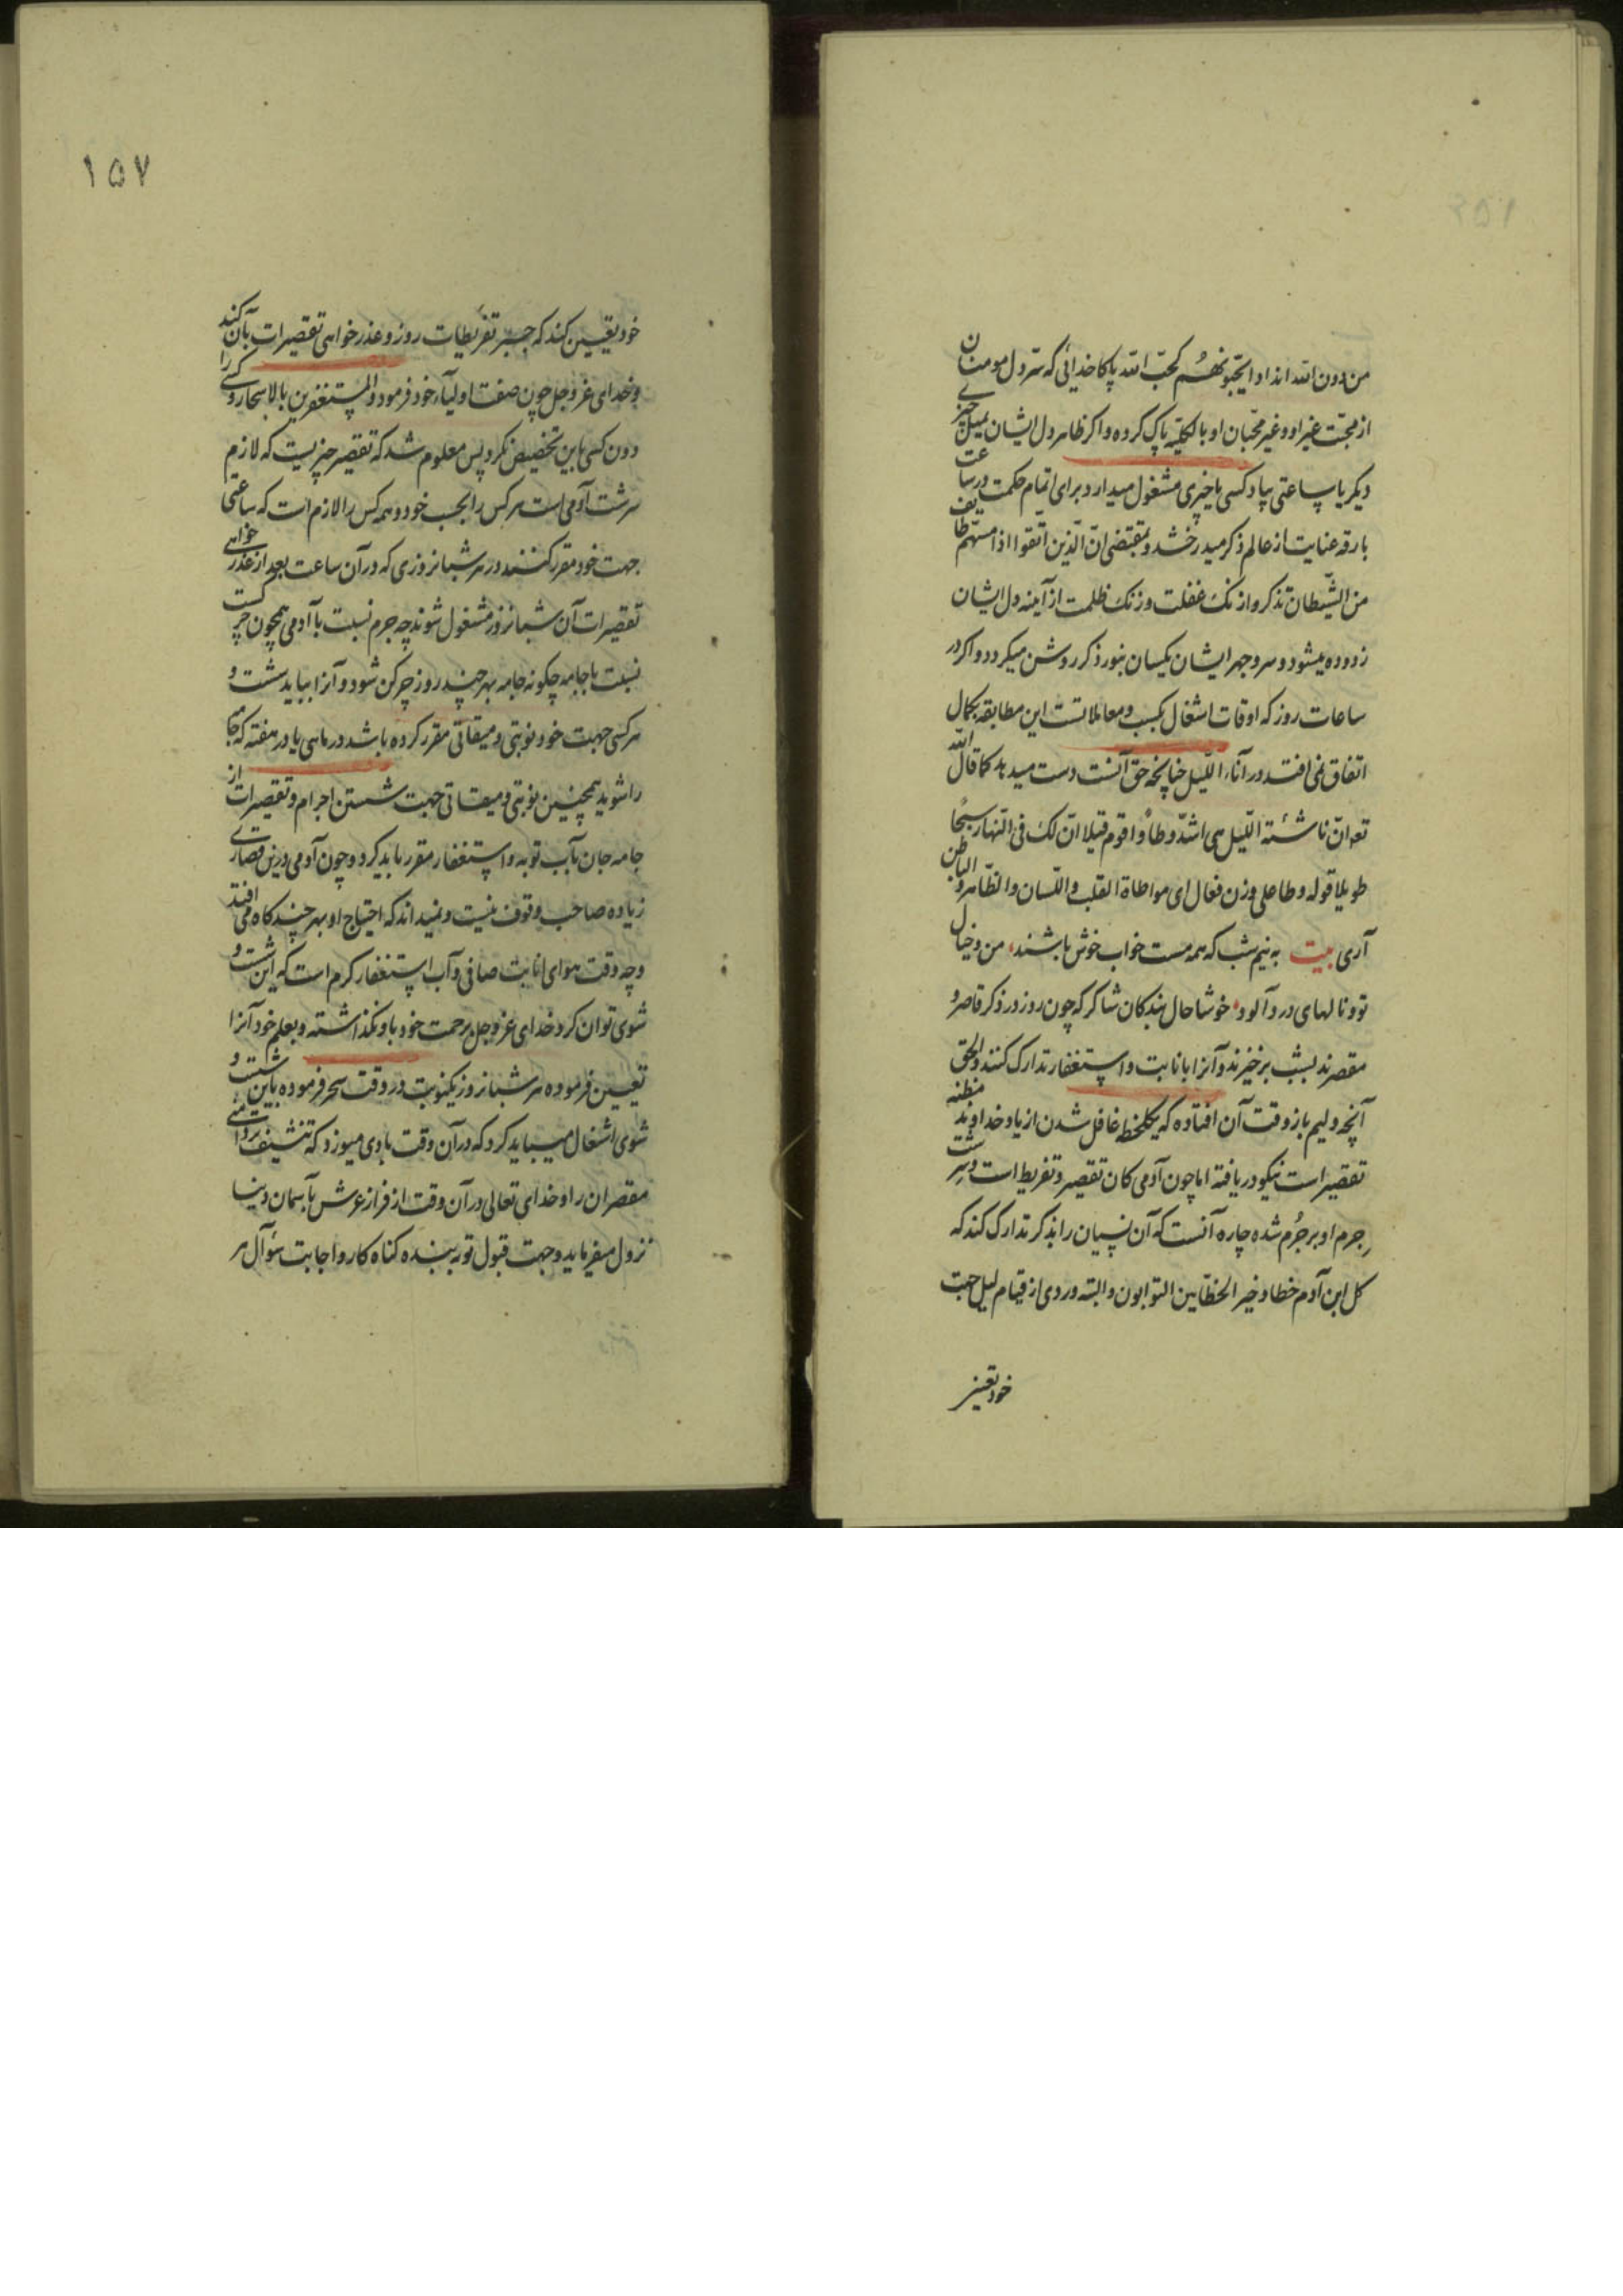 من دون الله اندادا یحبّونهُم کحبّ الله پاکا خدائی که سرّ دل مومنان
از محبّت غیر او و غیر محبّان او بالکلّیه پاک کرده و اکر ظاهر دل ایشان بمیل چیزی
دیکر یا ساعتی بیاد کسی یا چیزی مشغول میدارد برای اتمام حکمت در ساعت
بارقه عنایت از عالم ذکر میدرخشد و بمقتضی انّ الّذین اتّقوا اذا مسّهم طایف
من الشّیطان تذکروا زنک غفلت و زنک ظلمت از آینه دل ایشان
زدوده میشود و سر و جهر ایشان یکسان بنور ذکر روشن میکردد و اکر در
ساعات روز که اوقات اشغال بکسب و معاملاتست این مطابقه بکمال
اتفاق نمی افتد در آناء اللّیل چنانچه حق آنست دست میدهد کما قال الله
تع انّ ناشئة اللّیل هی اشدّ وطأ و اقوم قیلا انّ لک فی النّهار سبحًا
طویلا قوله وطا علی وزن فعال ای مواطاة القلب و اللّسان و الظّاهر و الباطن
آری بیت به نیم شب که همه مست خواب خوش باشند، من و خیال
تو و نالهای درد آلود، خوشا حال بندکان شاکر که چون روز در ذکر قاصر و
مقصرند بشب برخیزند و آنرا بانابت و استغفار تدارک کنند و الحق
آنچه دلیم باز وقت آن افتاده که یکلحظه غافل شدن از یاد خداوند مظنه
تقصیر است نیکو دریافته اما چون آدمی کان تقصیر و تفریط است و سرشت
جرم او بر جُرم شده چاره آنست که آن نسیان را بذکر تدارک کند که
کل ابن آدم خطا و خیر الخطّایین التوابون و البته وردی از قیام لیل جهت
خود تعیین
۱۵۷
خود یقین کند که جبر تفریطات روز و عذر خواهی تقصیرات بآن کند
و خدای عز و جل چون صفت اولیاء خود فرمود و المستغفرین بالاسحار و کسی را
دون کسی باین تخصیص نکرد پس معلوم شد که تقصیر چیزیست که لازم
سرشت آدمی است هر کس را بحسب خود و همه کس را لازم است که ساعتی
جهت خود مقرر کنند در هر شبانروزی که در آن ساعت بعد از عذر خواهی
تقصیرات آن شبانروز مشغول شوند چه جرم نسبت با آدمی همچون چرکست
نسبت با جامه چکونه جامه بهر چند روز چرکن شود و آنرا بباید شست و
هر کسی جهت خود نوبتی و میقاتی مقرر کرده باشد در ماهی یا در هفته که جامه
را شوید همچنین نوبتی و میقاتی جهت شستن اجرام و تقصیرات از
جامه جان بآب توبه و استغفار مقرر باید کرد و چون آدمی درین قصاری
زیاده صاحب وقوف نیست و نمیداند که احتیاج او بهر چند کاه می افتد
و چه وقت هوای انابت صافی و آب استغفار کرم است که این شست و
شوی توان کرد خدای عز و جل برحمت خود باو نکذاشته و بعلم خود آنرا
تعیین فرموده هر شبانروز یکنوبت در وقت سحر فرموده باین شست و
شوی اشغال میباید کرد که در آن وقت بادی میوزد که تنشیف تر دامنی
مقصران را و خدای تعالی در آن وقت از فراز عرش بآسمان دنیا
نزول میفرماید و جهت قبول توبه بنده کناه کار و اجابت سؤآل هر